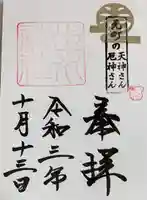 元町の
天神さん
厄神さん
奉拝
令和三年
十月十三日